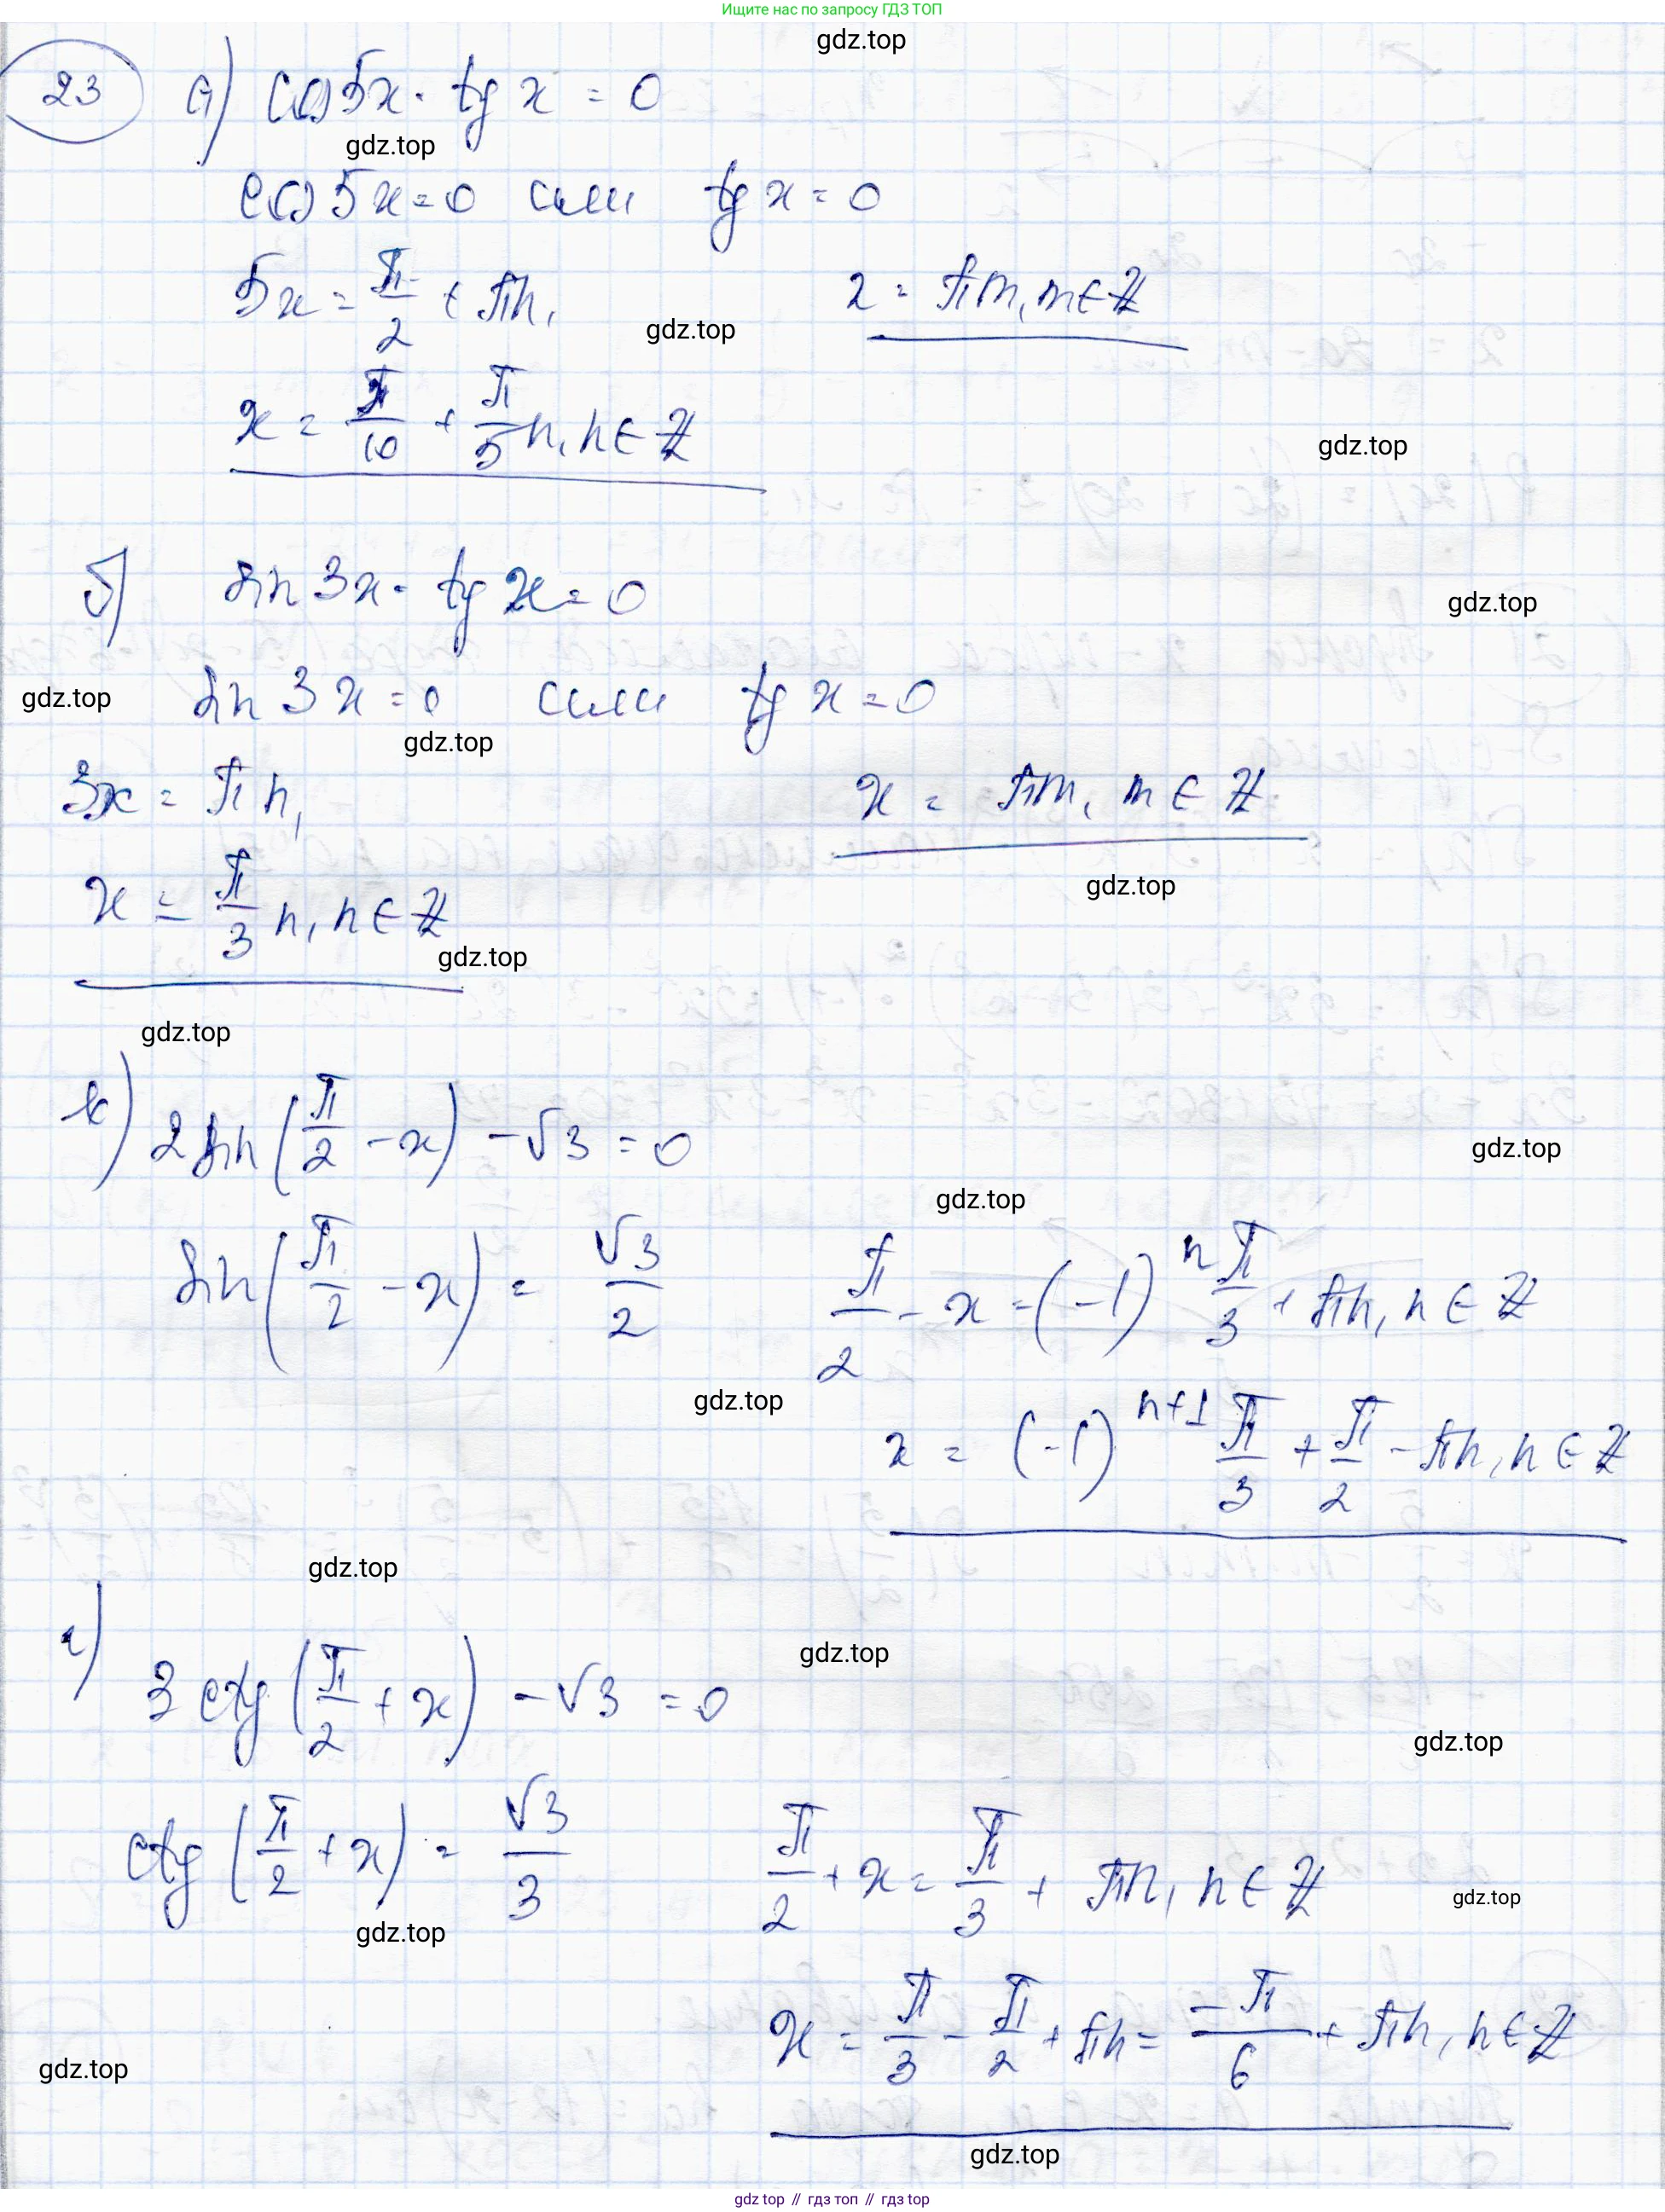 Ищите нас по запросу ГДЗ ТОП
gdz.top
23 а) cos5x · tg x = 0
gdz.top
cos 5x = 0 или tg x = 0
5x = π/2 + πn, x = πm, m ∈ Z
gdz.top
x = π/10 + π/5 n, n ∈ Z
gdz.top
б) sin 3x · tg x = 0
gdz.top
gdz.top
sin 3x = 0 или tg x = 0
gdz.top
3x = πn, x = πm, m ∈ Z
gdz.top
x = π/3 n, n ∈ Z
gdz.top
gdz.top
в) 2 sin(π/2 − x) − √3 = 0
gdz.top
gdz.top
sin(π/2 − x) = √3/2 π/2 − x = (−1)^n π/3 + πn, n ∈ Z
gdz.top
x = (−1)^(n+1) π/3 + π/2 − πn, n ∈ Z
gdz.top
г) 3 ctg(π/2 + x) − √3 = 0
gdz.top
gdz.top
ctg(π/2 + x) = √3/3 π/2 + x = π/3 + πn, n ∈ Z
gdz.top
gdz.top
x = π/3 − π/2 + πn = −π/6 + πn, n ∈ Z
gdz.top
gdz.top
gdz top // гдз топ // гдз top